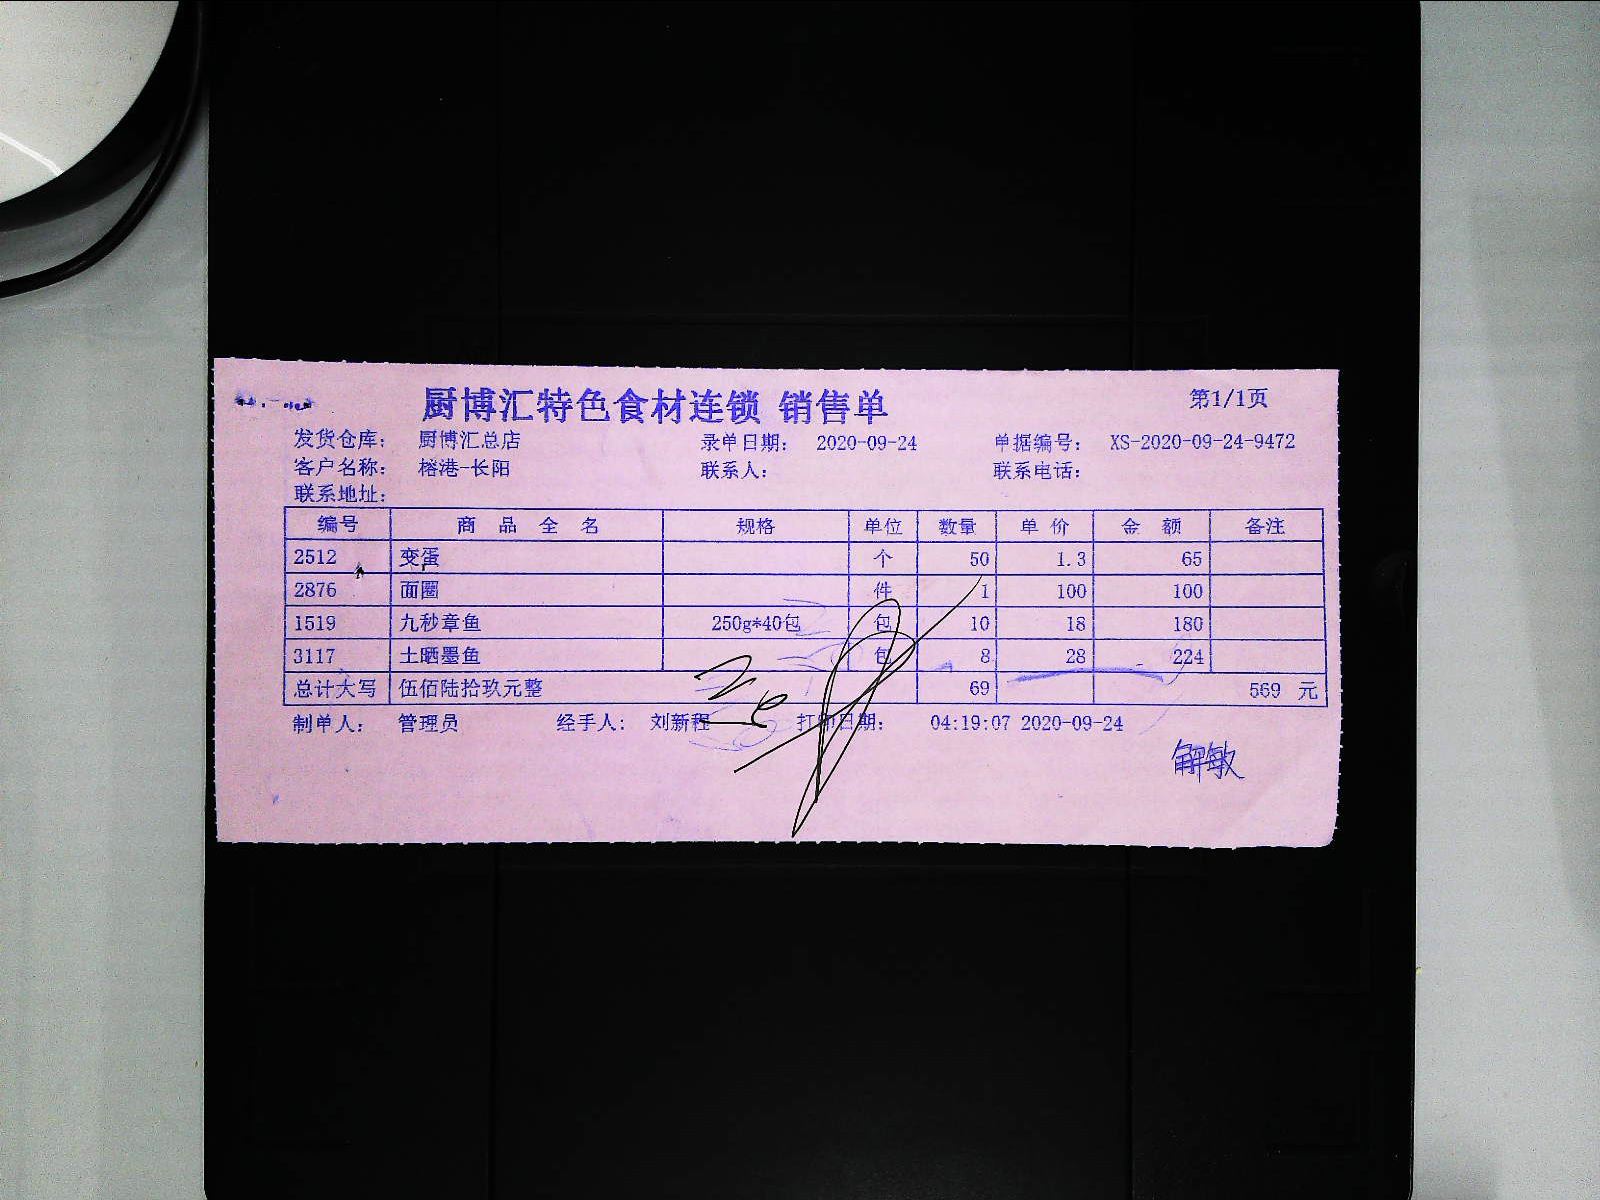 厨博汇特色食材连锁 销售单 第1/1页
发货仓库: 厨博汇总店 录单日期: 2020-09-24 单据编号: XS-2020-09-24-9472
客户名称: 榕港-长阳 联系人: 联系电话:
联系地址:
编号 商品全名 规格 单位 数量 单价 金额 备注
2512 变蛋 个 50 1.3 65
2876 面圈 件 1 100 100
1519 九秒章鱼 250g*40包 包 10 18 180
3117 土晒墨鱼 包 8 28 224
总计大写 伍佰陆拾玖元整 69 569 元
制单人: 管理员 经手人: 刘新程 打印日期: 04:19:07 2020-09-24
解敏